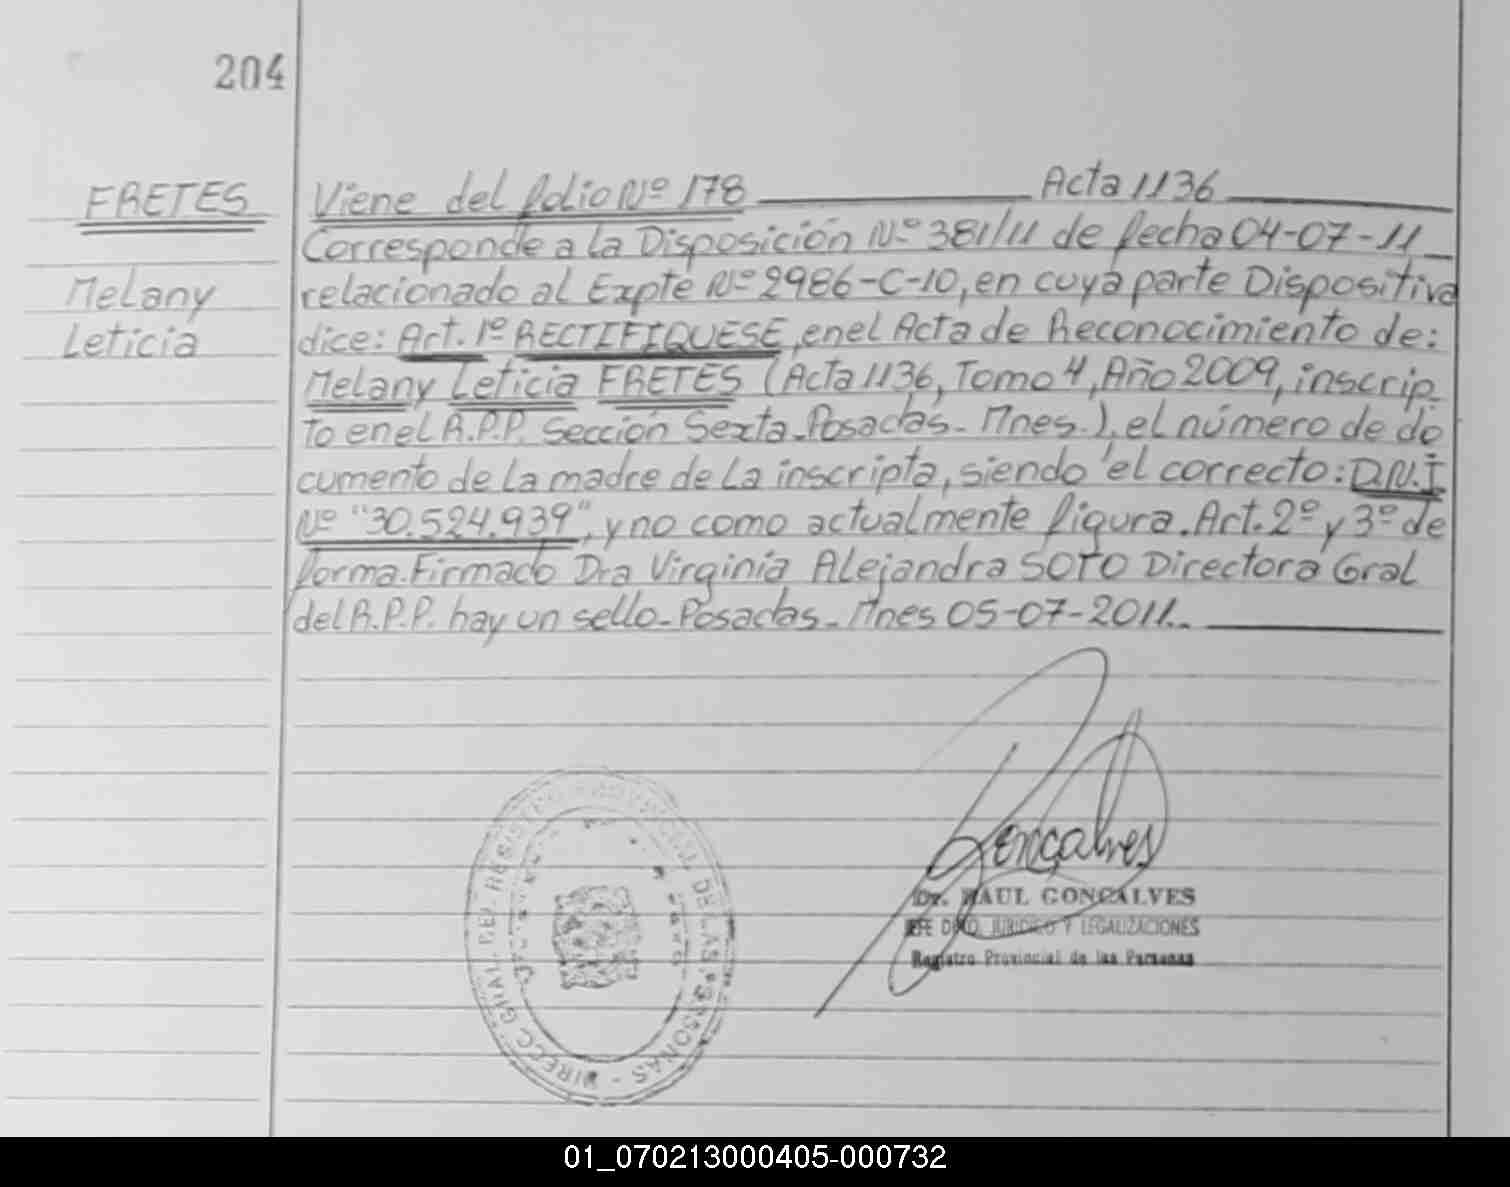 204
FRETES
Melany
Leticia
Viene del folio Nº 178 Acta 1136
Corresponde a la Disposición Nº 381/11 de fecha 04-07-11
relacionado al Expte Nº 2986-C-10, en cuya parte Dispositiva
dice: Art. 1º RECTIFIQUESE, en el Acta de Reconocimiento de:
Melany Leticia FRETES (Acta 1136, Tomo 4, Año 2009, inscrip-
to en el R.P.P. Sección Sexta-Posadas-Mnes.), el número de do
cumento de la madre de la inscripta, siendo el correcto: D.N.I
Nº "30.524.939", y no como actualmente figura. Art. 2º y 3º de
forma. Firmado Dra Virginia Alejandra SOTO Directora Gral
del R.P.P. hay un sello-Posadas-Mnes 05-07-2011.-
Gonçalves
Dr. RAUL GONÇALVES
JEFE DPTO. JURIDICO Y LEGALIZACIONES
Registro Provincial de las Personas
DIRECC GRAL. DEL REGISTRO PROVINCIAL DE LAS PERSONAS -
01_070213000405-000732